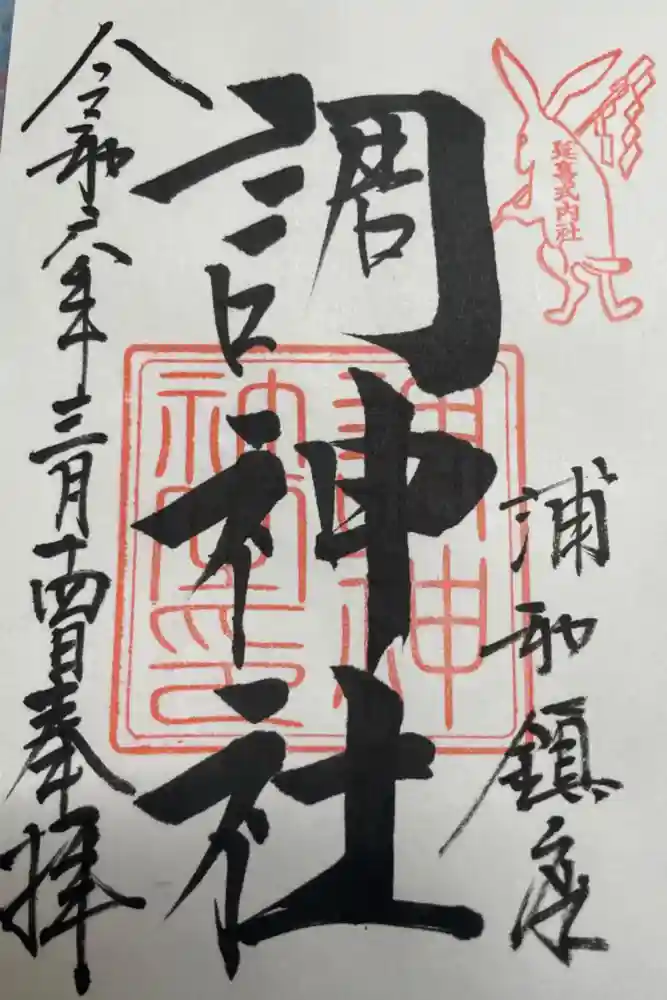 延喜式内社
浦和鎮座
調神社
調神
社之印
令和六年三月十四日奉拝